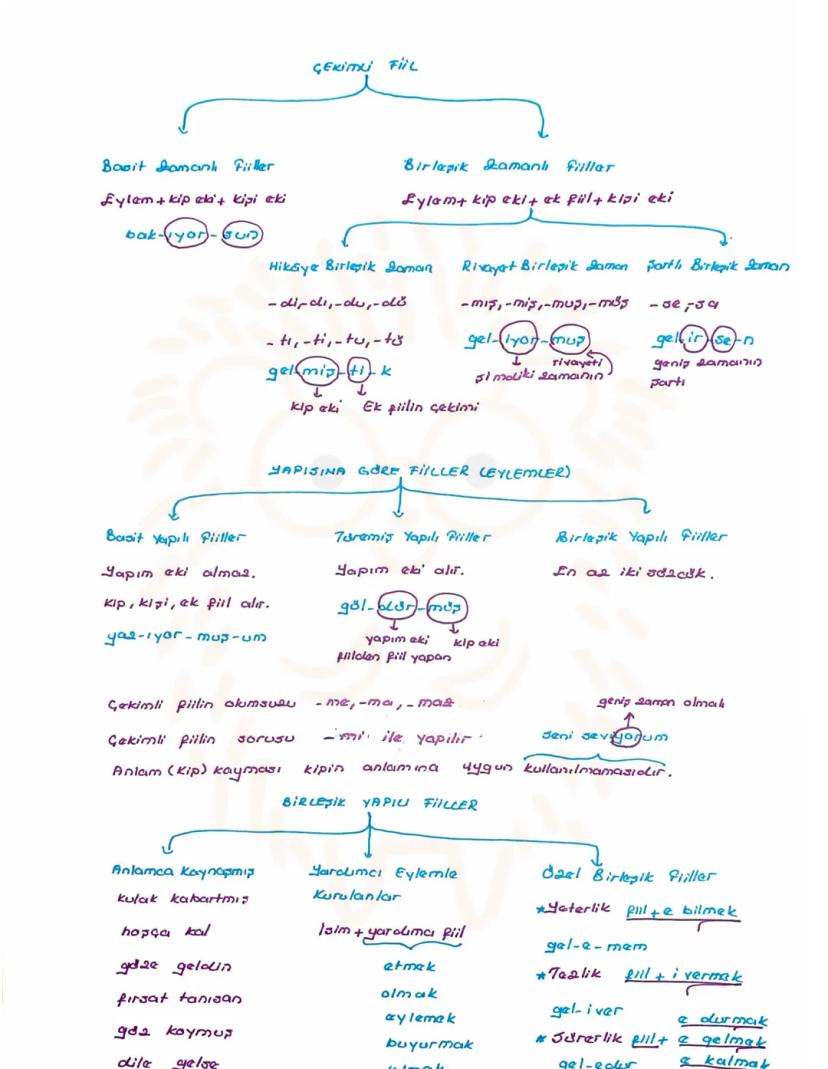 ÇEKİMLİ FİİL
Basit Zamanlı Fiiller
Birleşik Zamanlı Fiiller
Eylem + kip eki + kişi eki
Eylem + kip eki + ek fiil + kişi eki
bak-ıyor-sun
Hikâye Birleşik Zaman
Rivayet Birleşik Zaman
Şartlı Birleşik Zaman
-di,-dı,-du,-dü
-mış,-miş,-muş,-müş
-se,-sa
-tı,-ti,-tu,-tü
gel-iyor-muş
gel-ir-se-n
gel-miş-ti-k
rivayeti
şimdiki zamanın
geniş zamanın
şartı
kip eki
Ek fiilin çekimi
YAPISINA GÖRE FİİLLER (EYLEMLER)
Basit Yapılı Fiiller
Türemiş Yapılı Fiiller
Birleşik Yapılı Fiiller
Yapım eki almaz.
Yapım eki alır.
En az iki sözcük.
kip, kişi, ek fiil alır.
gül-dür-müş
yaz-ıyor-muş-um
yapım eki
kip eki
fiilden fiil yapan
Çekimli fiilin olumsuzu -me,-ma,-maz
geniş zaman olmalı
Çekimli fiilin sorusu -mi ile yapılır.
seni seviyorum
Anlam (kip) kayması kipin anlamına uygun kullanılmamasıdır.
BİRLEŞİK YAPILI FİİLLER
Anlamca Kaynaşmış
Yardımcı Eylemle
Kurulanlar
Özel Birleşik Fiiller
kulak kabartmış
*Yeterlik fiil+e bilmek
hoşça kal
İsim + yardımcı fiil
gel-e-mem
göze geldin
etmek
*Tezlik fiil + i vermek
fırsat tanısan
olmak
gel-iver
göz koymuş
eylemek
e durmak
*Sürerlik fiil+ e gelmek
buyurmak
e kalmak
dile gelse
gel-edur